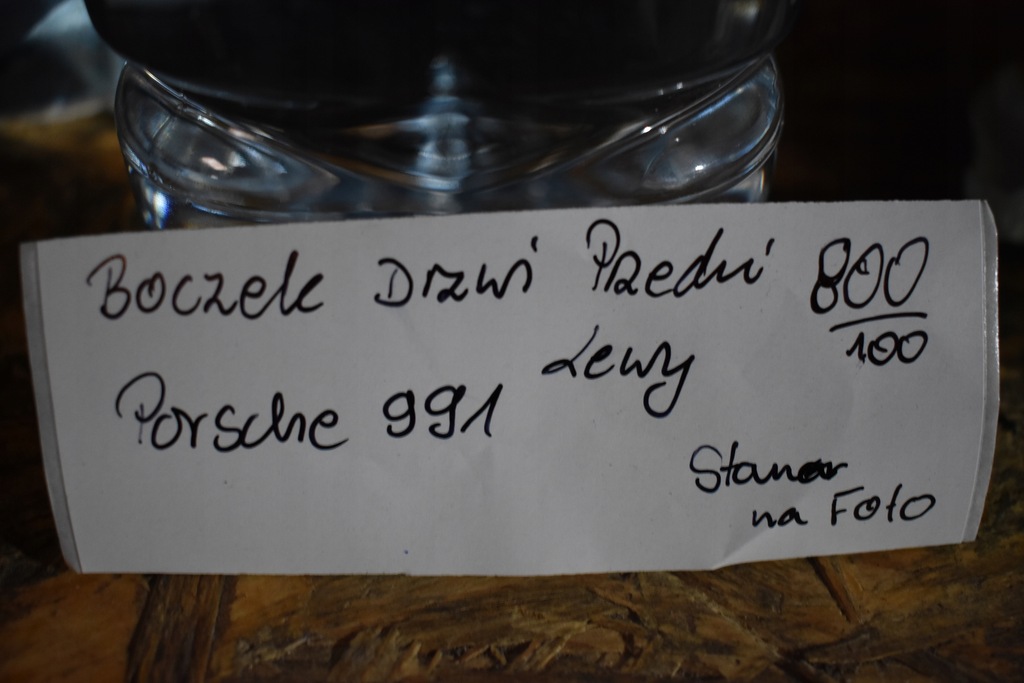 Boczek Drzwi Przedni 800
100
Lewy
Porsche 991
na Foto